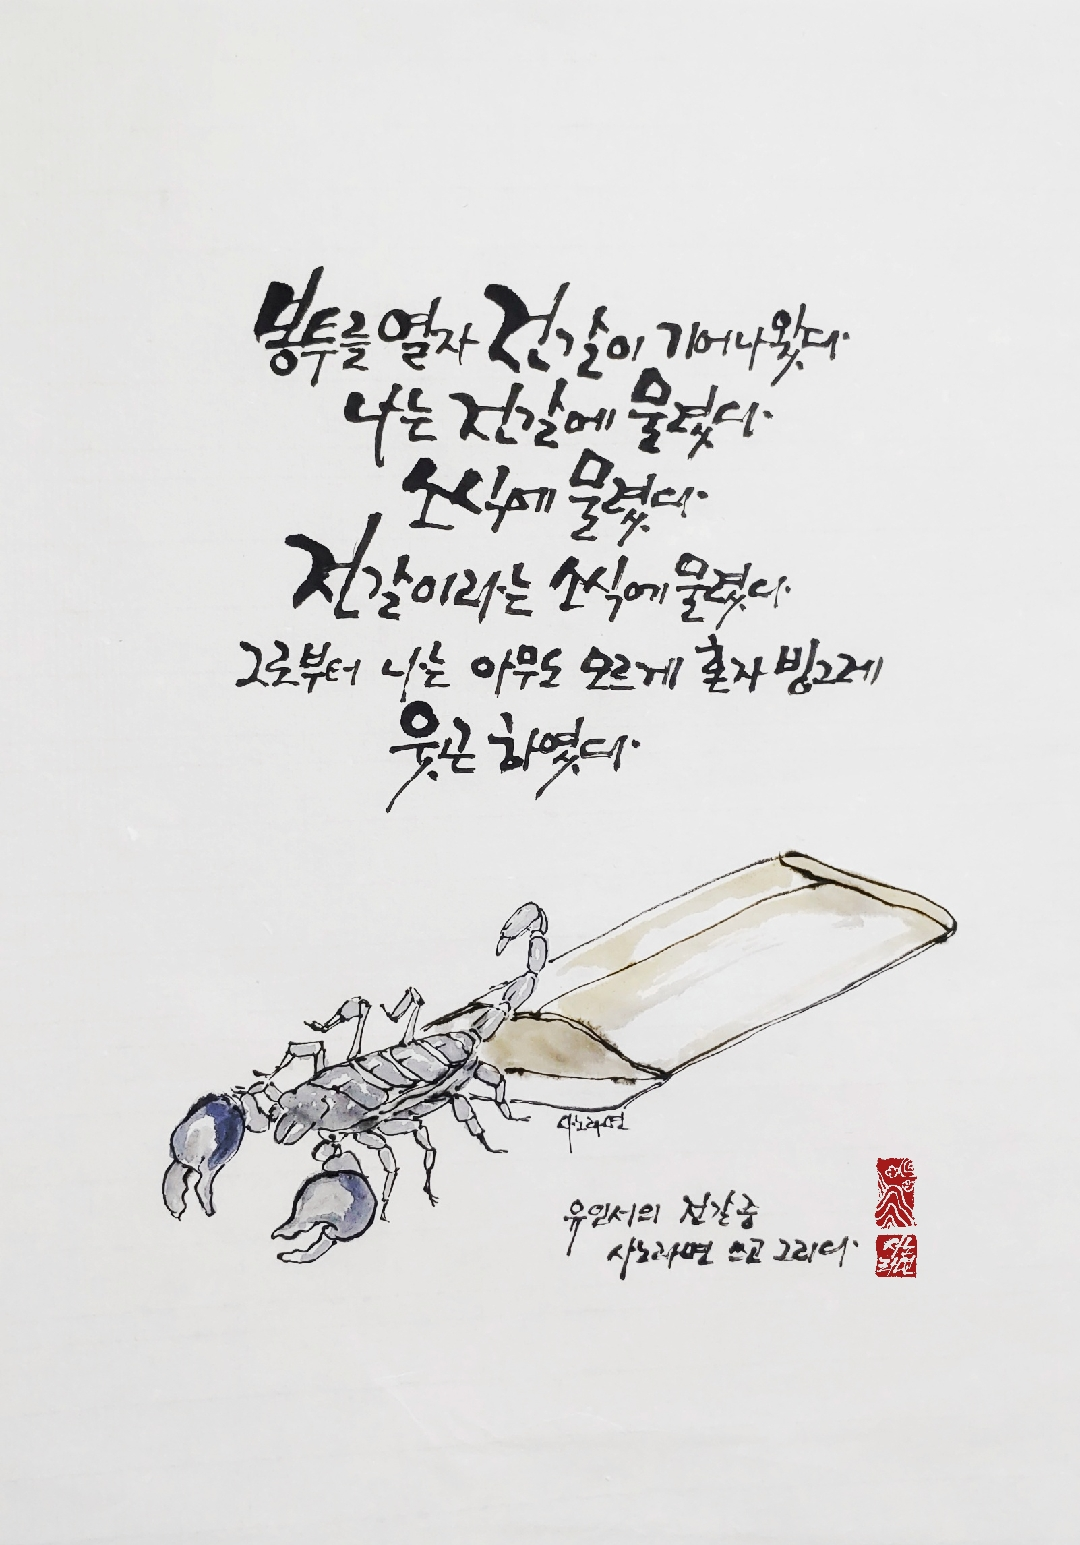 봉투를 열자 전갈이 기어나왔다.
나는 전갈에 물렸다.
소식에 물렸다.
전갈이라는 소식에 물렸다.
그로부터 나는 아무도 모르게 혼자 빙그레
웃곤 하였다.
사노라면
유인서의 전갈 중
사노라면 쓰고 그리다.